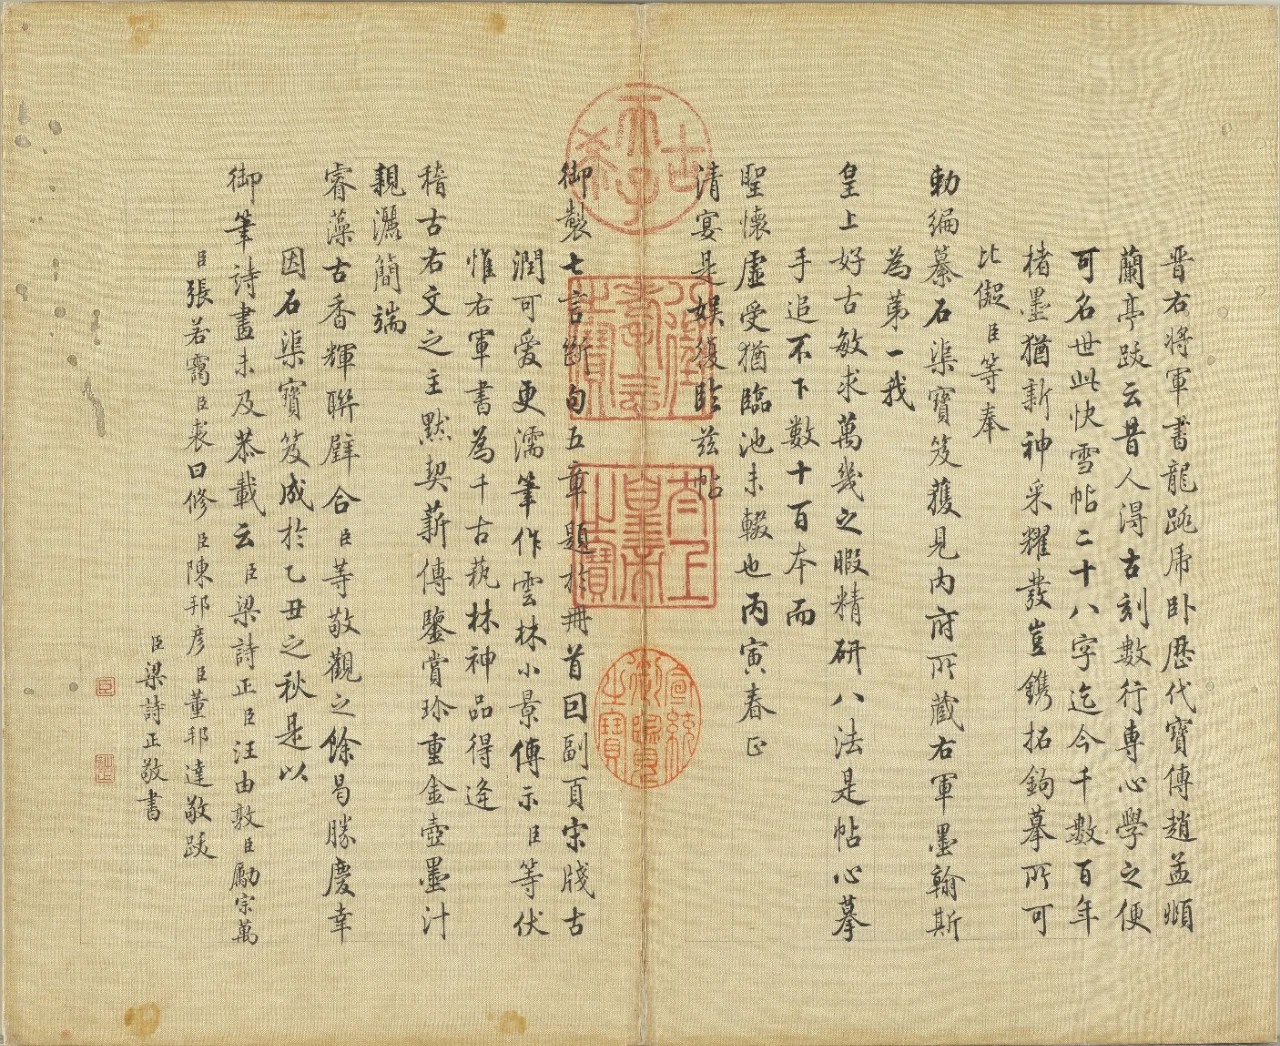 晋右將軍書龍跳虎卧歷代寶傳趙孟頫
蘭亭跋云昔人得古刻數行專心學之便
可名世此快雪帖二十八字迄今千數百年
楮墨猶新神采耀發豈鐫拓鉤摹所可
比儗臣等奉
勅編纂石渠寶笈獲見内府所藏右軍墨翰斯
為第一我
皇上好古敏求萬幾之暇精研八法是帖心摹
手追不下數十百本而
聖懷虛受猶臨池未輟也丙寅春正
清宴是娱復臨兹帖
御製七言斷句五章題於冊首回副頁宋牋古
潤可愛更濡筆作雲林小景傳示臣等伏
惟右軍書為千古蓺林神品得逢
稽古右文之主默契薪傳鑒賞珍重金壺墨汁
親灑簡端
睿藻古香輝聯璧合臣等敬觀之餘曷勝慶幸
因石渠寶笈成於乙丑之秋是以
御筆詩畫未及恭載云臣梁詩正臣汪由敦臣勵宗萬
臣張若靄臣裘曰修臣陳邦彦臣董邦達敬跋
臣梁詩正敬書
古希天子
八徵耄念之寶
太上皇帝之寶
宣統御覽之寶
臣